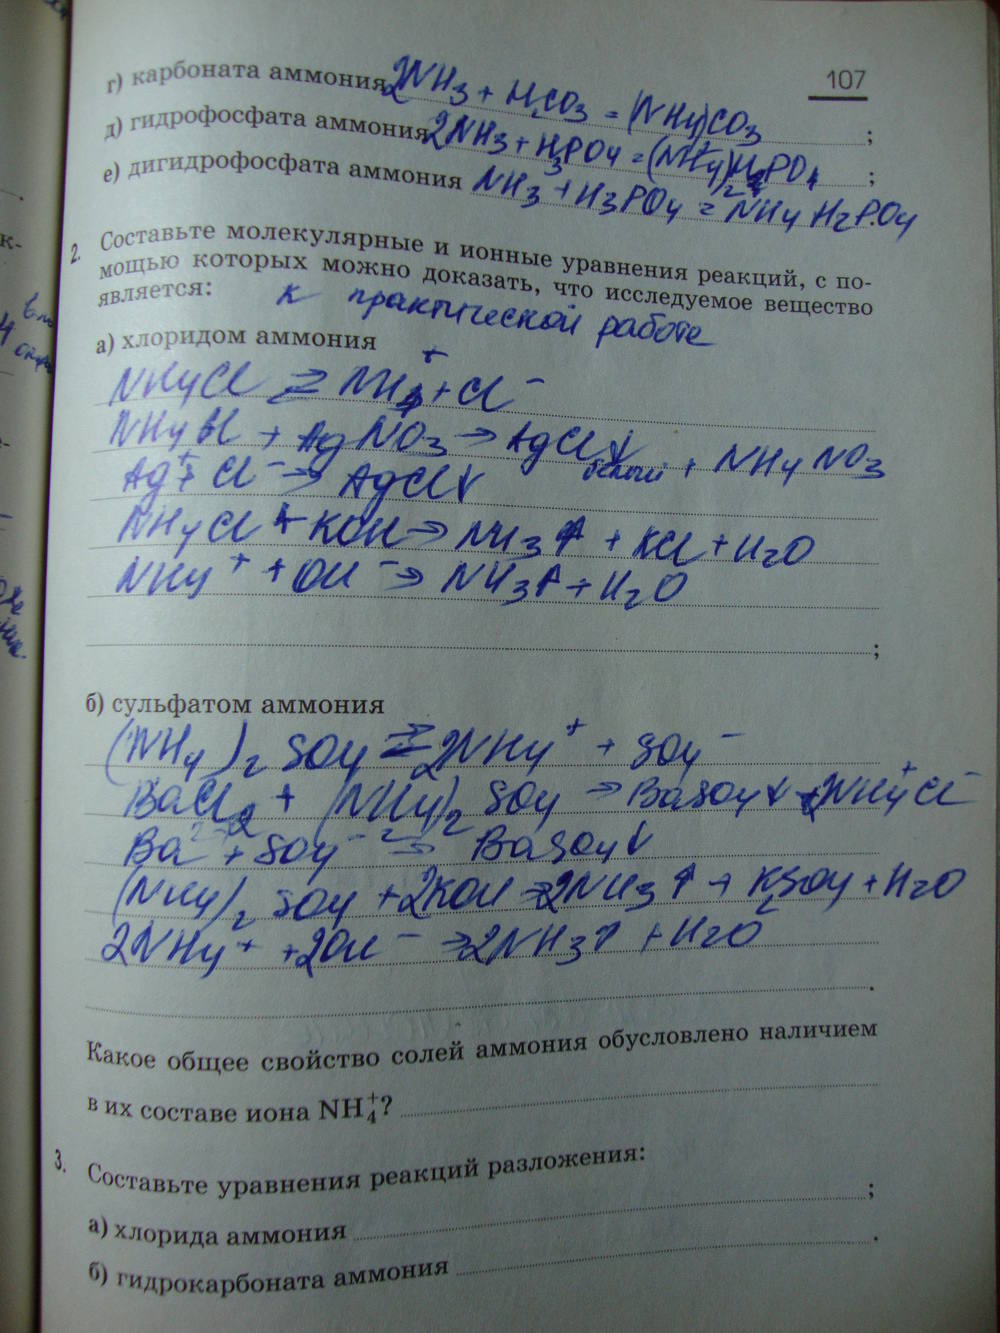 107
г) карбоната аммония 2NH3 + H2CO3 = (NH4)2CO3 ;
д) гидрофосфата аммония 2NH3 + H3PO4 = (NH4)2HPO4 ;
е) дигидрофосфата аммония NH3 + H3PO4 = NH4H2PO4
2. Составьте молекулярные и ионные уравнения реакций, с по-
мощью которых можно доказать, что исследуемое вещество
является: к практической работе
а) хлоридом аммония
NH4Cl ⇄ NH4+ + Cl-
NH4Cl + AgNO3 → AgCl↓ белый + NH4NO3
Ag+ + Cl- → AgCl↓
NH4Cl + KOH → NH3↑ + KCl + H2O
NH4+ + OH- → NH3↑ + H2O
;
б) сульфатом аммония
(NH4)2SO4 ⇄ 2NH4+ + SO4-
BaCl2 + (NH4)2SO4 → BaSO4↓ + 2NH4+Cl-
Ba2+ + SO4-2 → BaSO4↓
(NH4)2SO4 + 2KOH → 2NH3↑ + K2SO4 + H2O
2NH4+ + 2OH- → 2NH3↑ + H2O
.
Какое общее свойство солей аммония обусловлено наличием
в их составе иона NH4+?
3. Составьте уравнения реакций разложения:
а) хлорида аммония ;
б) гидрокарбоната аммония .